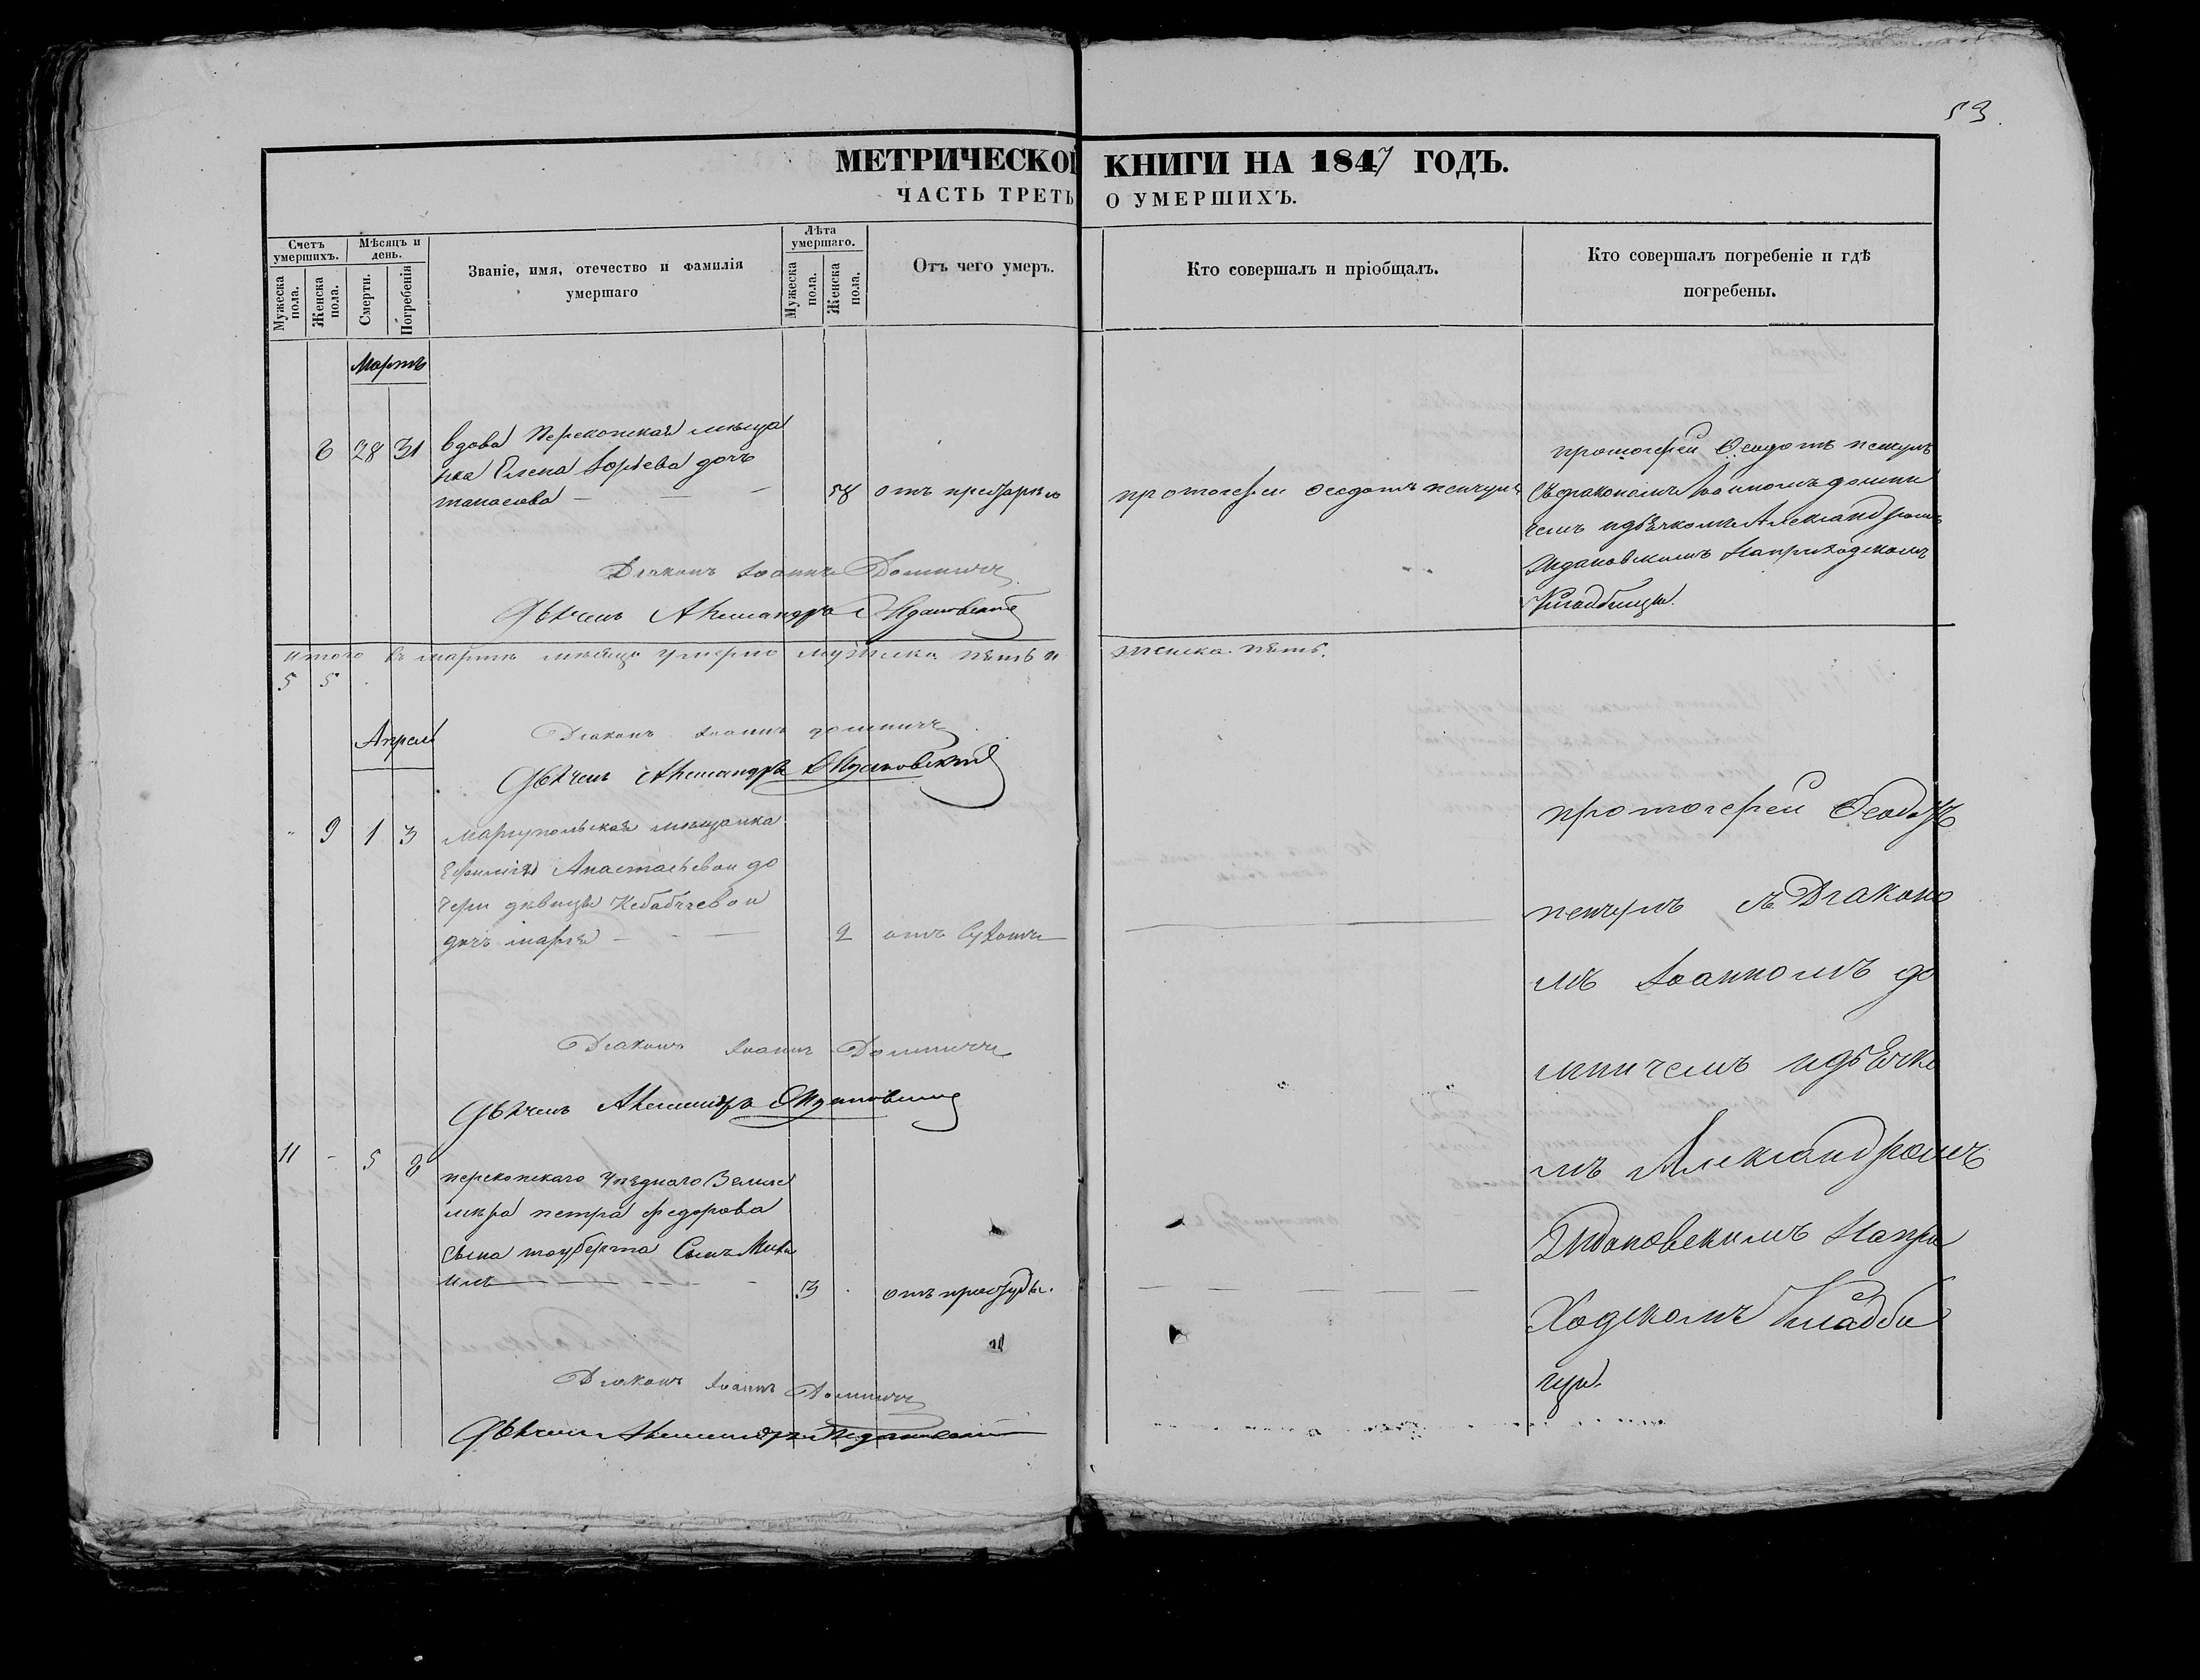 53.
МЕТРИЧЕСКОЙ КНИГИ НА 1847 ГОДЪ.
ЧАСТЬ ТРЕТЬ О УМЕРШИХЪ.
Счетъ умершихъ.
Мужеска пола.
Женска пола.
Мѣсяцъ и день.
Смерти.
Погребенія
Званіе, имя, отечество и фамилія
умершаго
Лѣта умершаго.
Мужеска пола.
Женска пола.
Отъ чего умеръ.
Кто совершалъ и пріобщалъ.
Кто совершалъ погребеніе и гдѣ
погребены.
Мартъ
28 31
вдова Перекопская мѣща
нка Елена дочь
58 отъ
протоіереи Феодотъ
протоіереи Феодотъ
съ диакономъ Іоанномъ домни
чемъ и дьячкомъ Александромъ
Ждановскимъ на приходскомъ
Кладбищи.
Диаконъ Іоаннъ Домничь
Дьячекъ Александръ Ждановский
итого въ мартѣ мѣсяцѣ умерло мужска пять и женска пять.
5 5
Апрель
Диаконъ Іоаннъ домничь
Дьячекъ Александръ Ждановский
9 1 3
мариупольская мѣщанка
Анастасьевои до
чери дѣвицы
дочь мария
2 отъ сухотъ
протоиереи
съ Диаконо
мъ Іоанномъ до
мничемъ и дьячко
мъ Александромъ
Ждановскимъ На при
Ходскомъ Кладби
щи.
Диаконъ Іоаннъ Домничь
Дьячекъ Александръ Ждановский
11 - 5
перекопскаго уѣзднаго Земле
мѣра петра федорова
сына тоуберта Сынъ Миха
илъ
3 отъ простуды.
Диаконъ Іоаннъ Домничь
Дьячекъ Александръ Ждановский